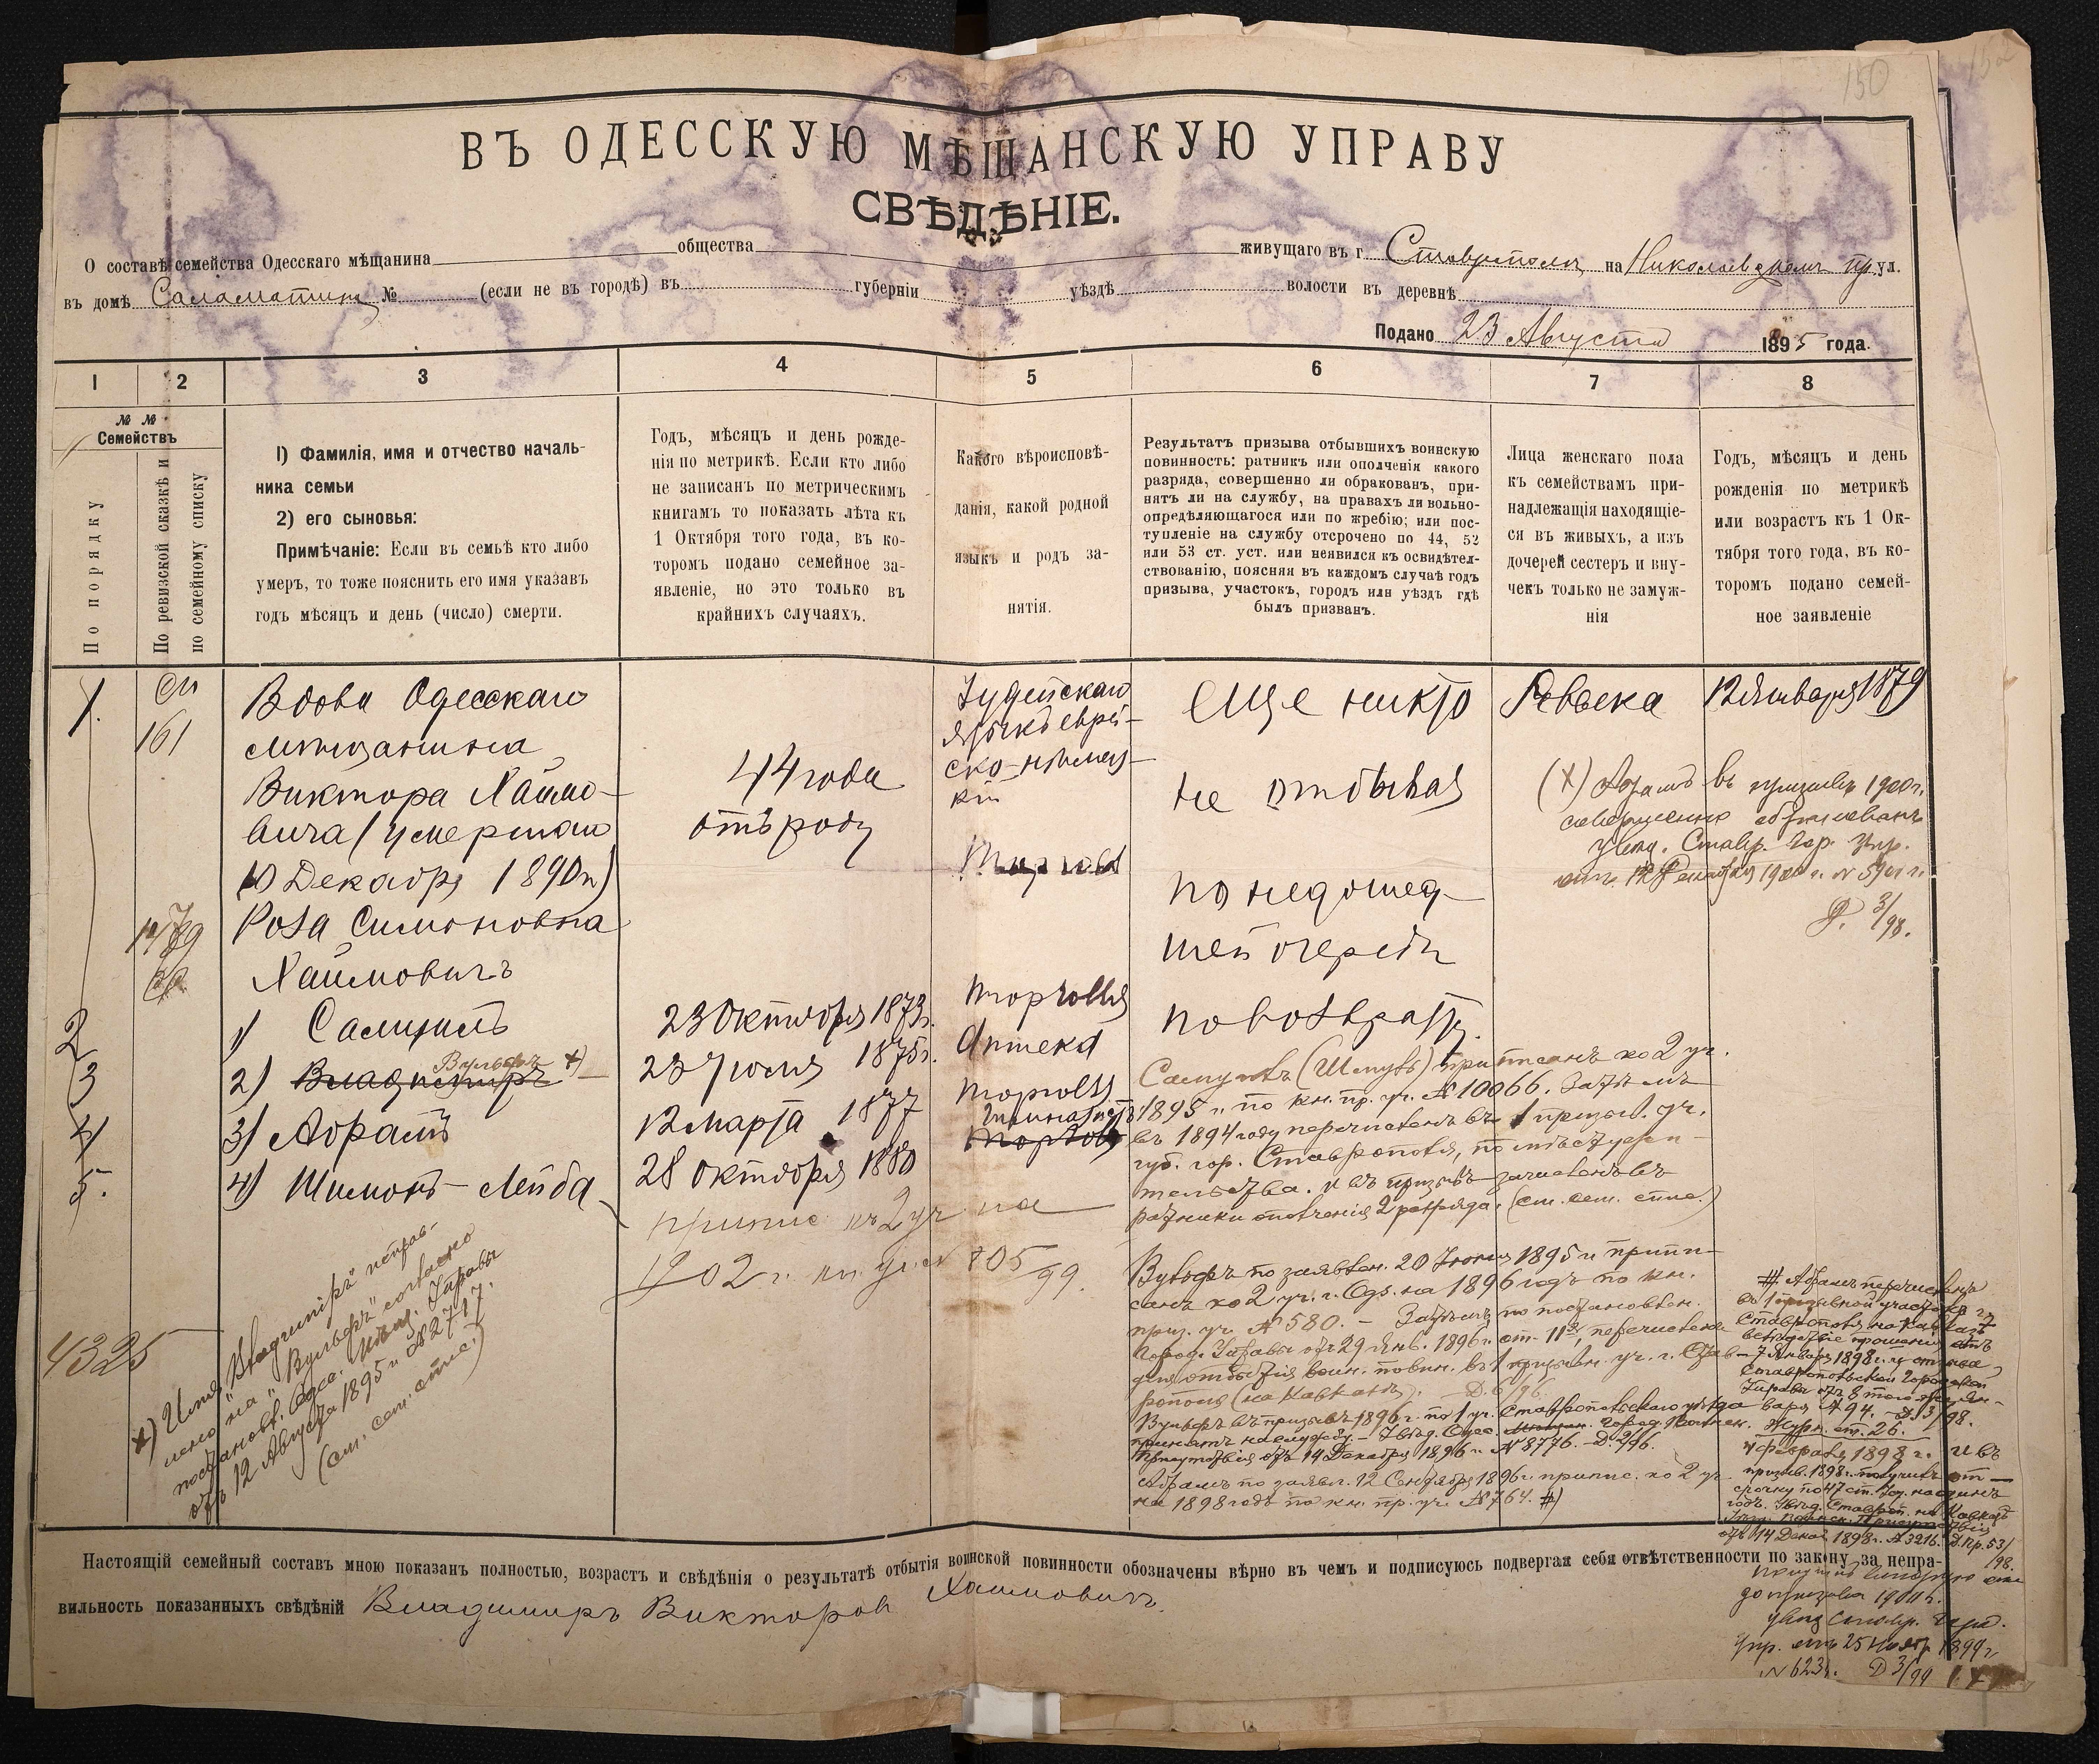 150
152
ВЪ ОДЕССКУЮ МѢЩАНСКУЮ УПРАВУ
СВѢДѢНІЕ.
О составѣ семейства Одесскаго мѣщанина общества живущаго въ г. Ставрополѣ на Николаевскомъ пр. ул.
въ домѣ Саламатина № (если не въ городѣ) въ губерніи уѣздѣ волости въ деревнѣ
Подано 23 Августа 1895 года.
1 2 3 4 5 6 7 8
№ №
Семействъ
По порядку
По ревизской сказкѣ и
по семейному списку
1) Фамилія, имя и отчество началь-
ника семьи
2) его сыновья:
Примѣчаніе: Если въ семьѣ кто либо
умеръ, то тоже пояснить его имя указавъ
годъ мѣсяцъ и день (число) смерти.
Годъ, мѣсяцъ и день рожде-
нія по метрикѣ. Если кто либо
не записанъ по метрическимъ
книгамъ то показать лѣта къ
1 Октября того года, въ ко-
торомъ подано семейное за-
явленіе, но это только въ
крайнихъ случаяхъ.
Какого вѣроисповѣ-
данія, какой родной
языкъ и родъ за-
нятія.
Результатъ призыва отбывшихъ воинскую
повинность: ратникъ или ополченія какого
разряда, совершенно ли обракованъ, при-
нятъ ли на службу, на правахъ ли вольно-
опредѣляющагося или по жребію; или пос-
тупленіе на службу отсрочено по 44, 52
или 53 ст. уст. или неявился къ освидѣтел-
ствованію, поясняя въ каждомъ случаѣ годъ
призыва, участокъ, городъ или уѣздъ гдѣ
былъ призванъ.
Лица женскаго пола
къ семействамъ при-
надлежащія находящіе-
ся въ живыхъ, а изъ
дочерей сестеръ и вну-
чекъ только не замуж-
нія
Годъ, мѣсяцъ и день
рожденія по метрикѣ
или возрастъ къ 1 Ок-
тября того года, въ ко-
торомъ подано семей-
ное заявленіе
1.
161
Вдова Одесскаго
мѣщанина
Виктора Хаимо-
вича (умершаго
10 Декабря 1890 г)
Роза Симоновна
Хаимовичъ
44 года
отъ роду
Іудейскаго
языкъ еврей-
ско-нѣмец-
кій
Торговля
еще никто
не отбывал
по недошед-
шей очереди
по возврасту.
Ревека 12 Января 1879
(х) Абрамъ въ призывѣ 1900 г.
совершенно обракованъ
увед. Ставр. Гор. Упр.
1900 г. № 5901 г.
3/98.
2 1) Самуилъ 23 Октября 1873 г. торговля
3 2) Владимиръ Вульфъ х) 23 Іюля 1875 г. Аптека
4 3) Абрамъ 12 Марта 1877 торговля
5. 4) Шимонъ-Лейба 28 Октября 1880 гимназистъ
торговля
припис. къ 2 уч на
1902 г. по пр. уч № 805/99.
Самуилъ (Шмуль) приписанъ ко 2 уч.
1895 г. по кн. пр. уч. № 10066. Затѣмъ
въ 1894 году перечисленъ въ 1 призыв. уч.
губ. гор. Ставрополя, по мѣсту жи-
тельства. и въ призывъ зачисленъ въ
ратники ополченія 2 разряда. (см. сем. спис.)
Вульфъ по заявлен. 20 Іюня 1895 г. припи-
санъ ко 2 уч. г. Одс. на 1896 годъ по кн.
приз. уч. № 580. - Затѣмъ по постановлен.
Город. Управы отъ 29 Янв. 1896 г. ст. 11, перечисленъ
для отбытія воин. повин. въ 1 призывн. уч. г. Став-
рополя (на Кавказѣ). - Д. 6/96.
Вульфъ въ призывѣ 1896 г. по 1 уч. Ставропольскаго уѣзда
принятъ на службу. - Увѣд. Одес. Город. Воинск.
Присутствія отъ 14 Декабря 1896 г. № 8776. - Д. 2/96.
Абрамъ по заявл. 12 Сентября 1896 г. припис. ко 2 уч
на 1898 годъ по кн. пр. уч. № 764. #)
#. Абрамъ перечисленъ
въ 1 призывной участокъ г.
Ставрополя на Кавказѣ
вслѣдствіе прошенія отъ
7 Января 1898 г. и отзыва
Ставропольской Городской
Управы отъ 8 того же Ян-
варя № 94. - Д. 3/98.
Журн. ст. 26.
4 февраля 1898 г. и въ
призыв. 1898 г. получилъ от-
срочку по 47 ст. Уст. на одинъ
годъ. Увѣд. Ставроп. на Кавказѣ
Воинск. Присутствія
отъ 14 Декаб. 1898 г. № 3216. Д. пр. 53/98.
до призыва 1900 г.
увед Ставр. Гор.
Упр. отъ 25 Нояб. 1899 г
№ 6231. Д 3/99
4325
х) Имя „Владимиръ“ исправ-
лено на „Вульфъ“ согласно
постановл. Одес. Мѣщ. Управы
отъ 12 Августа 1895 г. № 2717.
(см. сем. спис.)
Настоящій семейный составъ мною показан полностью, возрастъ и свѣдѣнія о результатѣ отбытія воинской повинности обозначены вѣрно в чемъ и подписуюсь подвергая себя отвѣтственности по закону за непра-
вильность показанныхъ свѣдѣній Владимиръ Викторов Хаимовичъ.